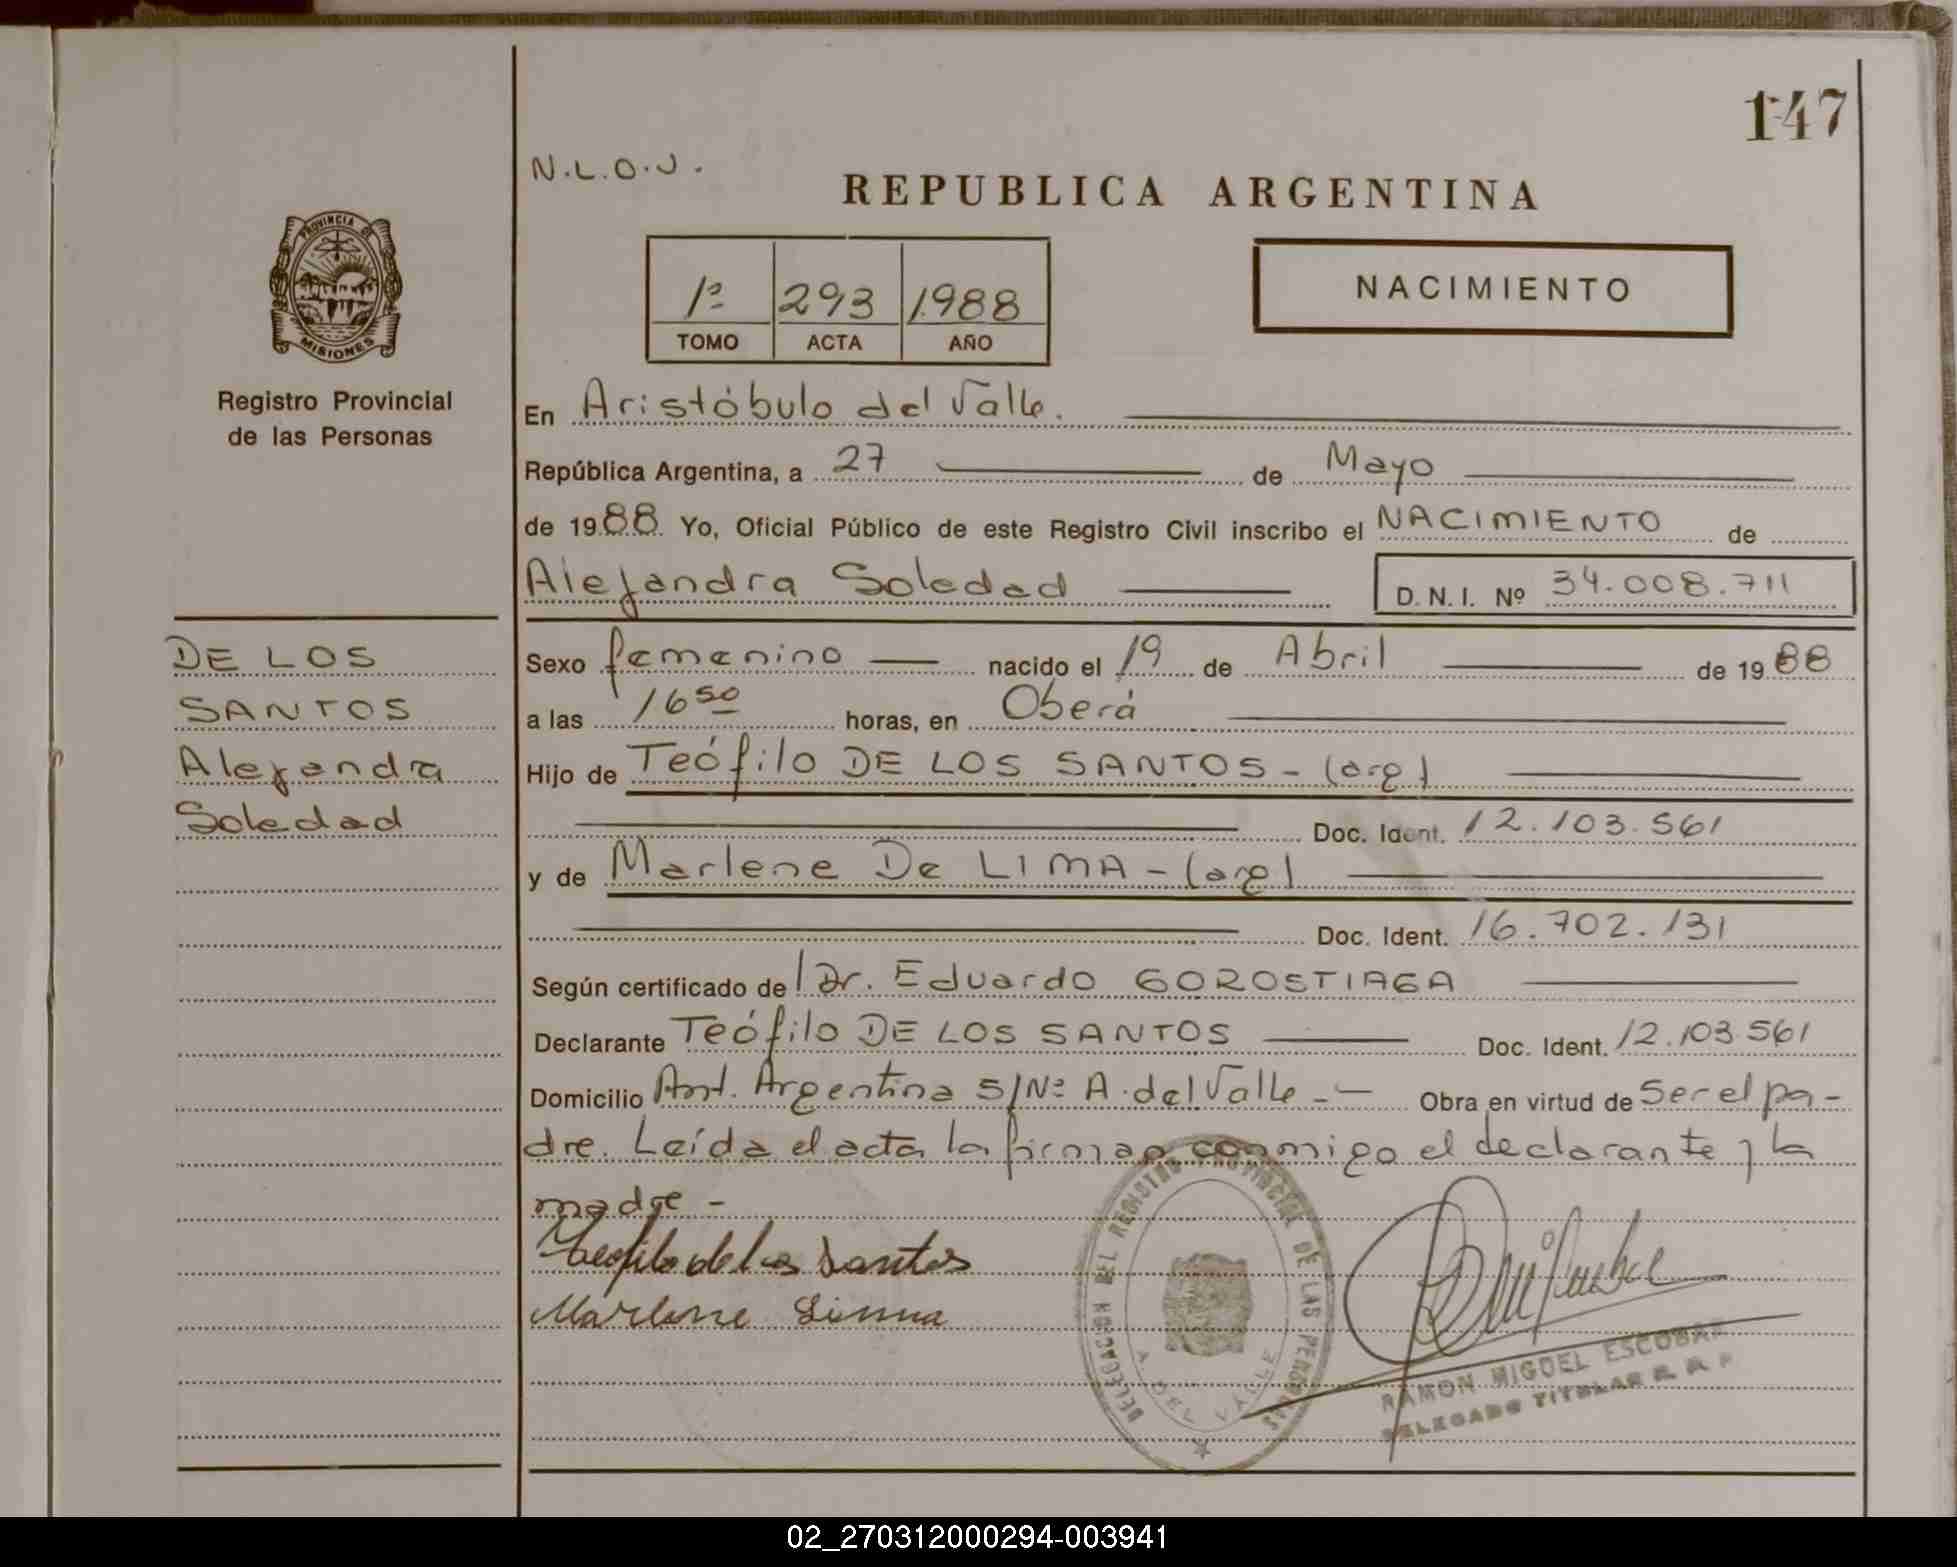 147
N.L.O.J.
REPUBLICA ARGENTINA
PROVINCIA DE
MISIONES
1º 293 1.988
TOMO ACTA AÑO
NACIMIENTO
Registro Provincial
de las Personas
En Aristóbulo del Valle.
República Argentina, a 27 de Mayo
de 1988. Yo, Oficial Público de este Registro Civil inscribo el NACIMIENTO de
Alejandra Soledad D.N.I. Nº 34.008.711
DE LOS
SANTOS
Alejandra
Soledad
Sexo femenino nacido el 19 de Abril de 1988
a las 16 50 horas, en Oberá
Hijo de Teófilo DE LOS SANTOS - (arg)
Doc. Ident. 12.103.561
y de Marlene De LIMA - (arg)
Doc. Ident. 16.702.131
Según certificado del Dr. Eduardo GOROSTIAGA
Declarante Teófilo DE LOS SANTOS Doc. Ident. 12.103.561
Domicilio Ant. Argentina S/Nº A. del Valle - Obra en virtud de ser el pa-
dre. Leída el acta la firman conmigo el declarante y la
madre -
Teofilo de los Santos
Marlene Limna
DELEGACION DEL REGISTRO PROVINCIAL DE LAS PERSONAS
A. DEL VALLE
RAMON MIGUEL ESCOBAR
DELEGADO TITULAR R. P.
02_270312000294-003941